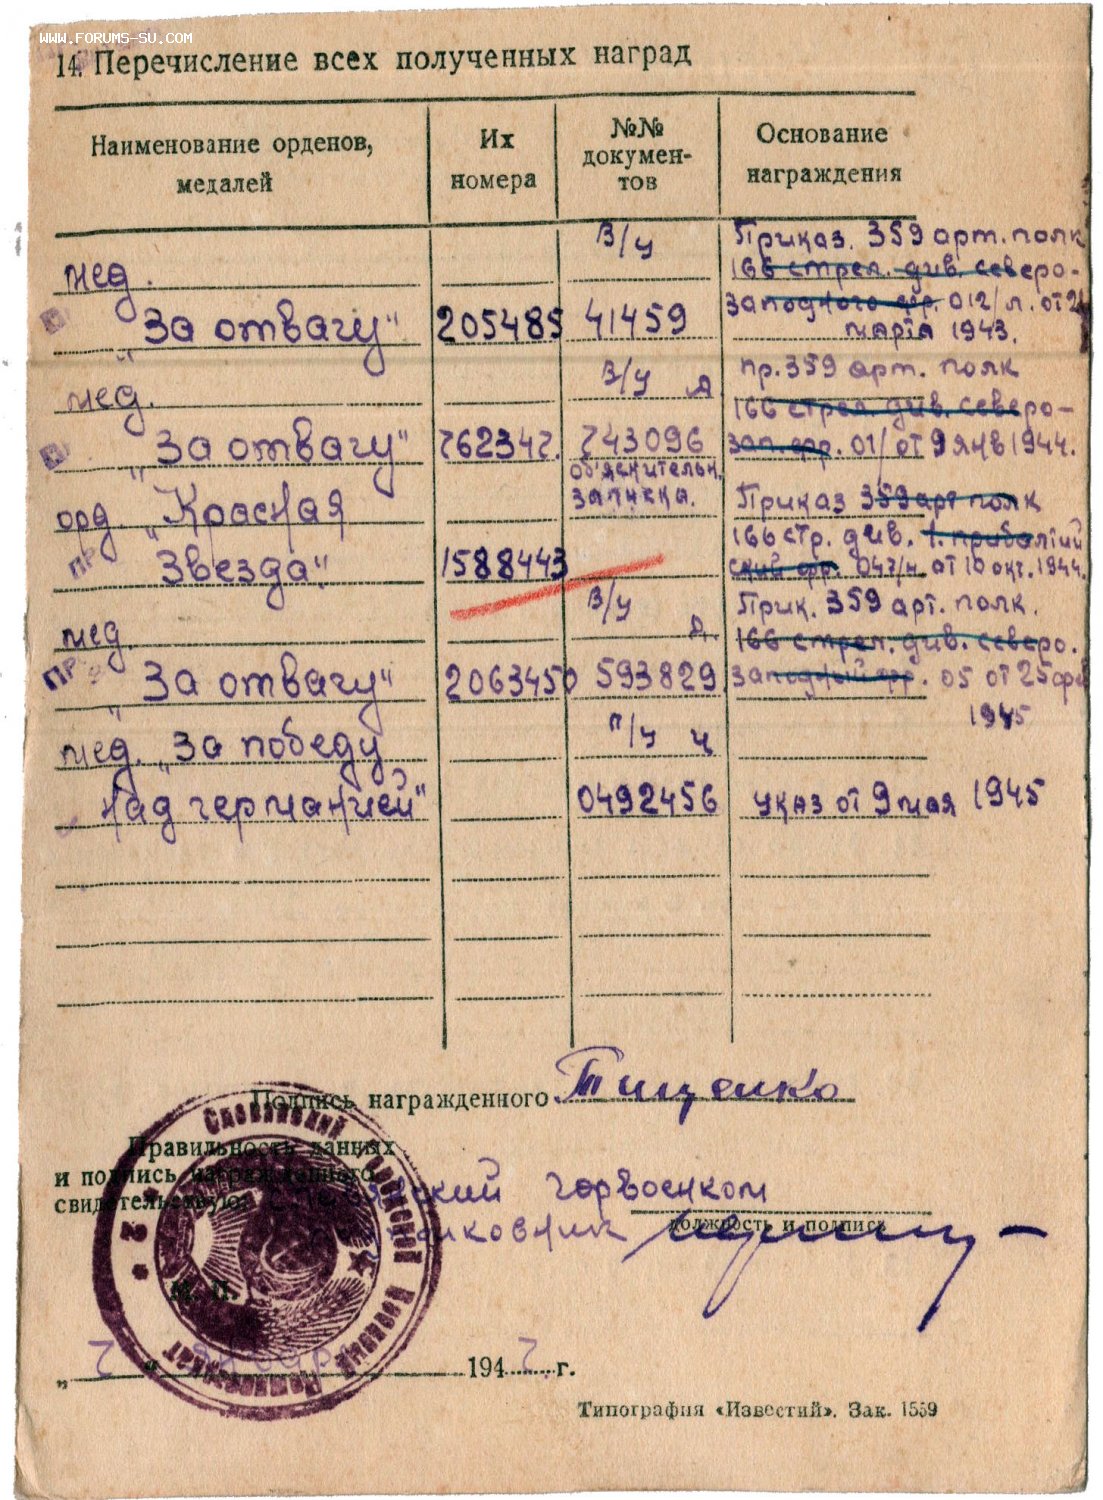 WWW.FORUMS-SU.COM
14. Перечисление всех полученных наград
Наименование орденов, медалей
Их номера
№№ докумен-тов
Основание награждения
мед. „За отвагу"
205485
В/у 41459
Приказ. 359 арт. полк
166 стрел. див. северо-
западного фр. 012/л. от 2
марта 1943.
мед. „За отвагу"
762347.
В/у А 743096
пр. 359 арт. полк
166 стрел. див. северо-
зап. фр. 01/ от 9 янв 1944.
орд. „Красная Звезда"
1588443
об'яснительн. записка.
Приказ 359 арт полк
166 стр. див. 1. прибалтий
ский фр. 047/н. от 10 окт. 1944.
ПР
мед. „За отвагу"
2063450
В/у А. 593829
Прик. 359 арт. полк.
166 стрел. див. северо.
западный фр. 05 от 25 фев
1945
ПР
мед. „За победу
над германией"
П/у Ц 0492456
указ от 9 мая 1945
Подпись награжденного Тищенко
Правильность данных
и подпись награжденного
свидетельствую: Славянский горвоенком
должность и подпись
полковник
Славянский Городской Военный Комиссариат
* 2 *
М. П.
„ 7 " января 1947 г.
Типография «Известий». Зак. 1559